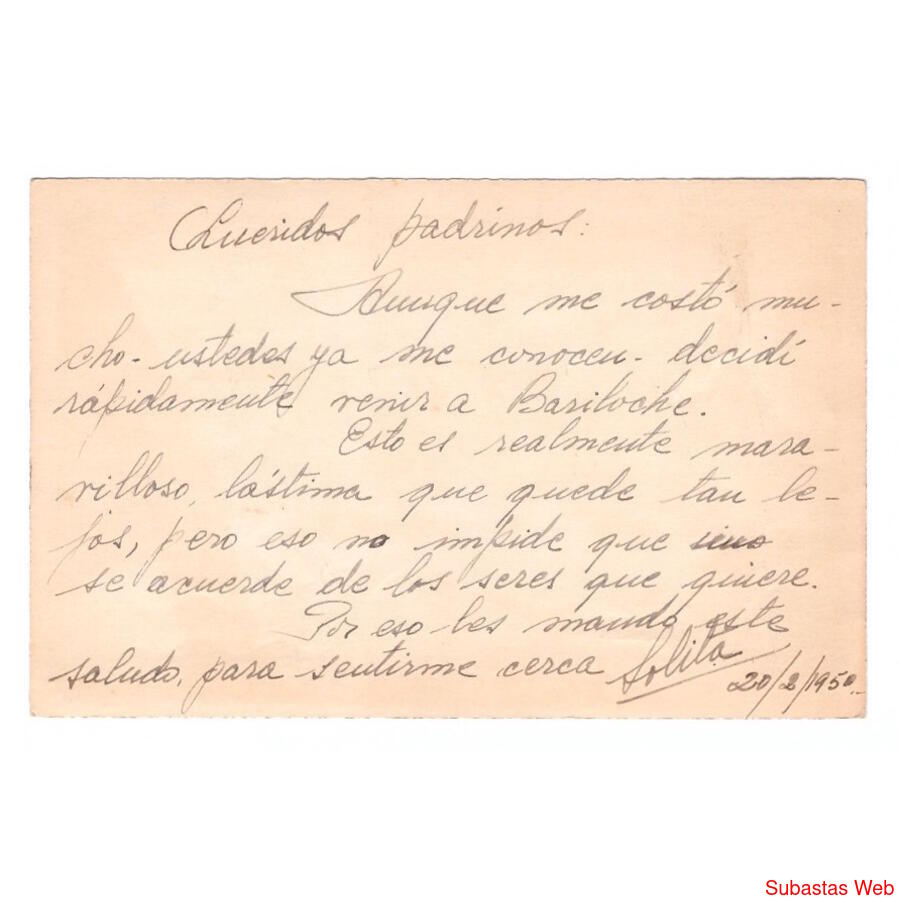 Queridos padrinos:
Aunque me costó mu-
cho- ustedes ya me conocen- decidí
rápidamente venir a Bariloche.
Esto es realmente mara-
villoso, lástima que quede tan le-
jos, pero eso no impide que uno
se acuerde de los seres que quiere.
Por eso les mando este
saludo, para sentirme cerca Lolita
20/2/1950.
Subastas Web